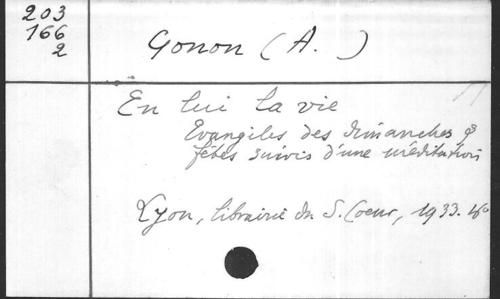 203
166
2
Gonon (A. )
En lui la vie
Evangiles des dimanches &
fêtes suivis d'une méditation
Lyon, librairie du S. Coeur, 1933. 4º